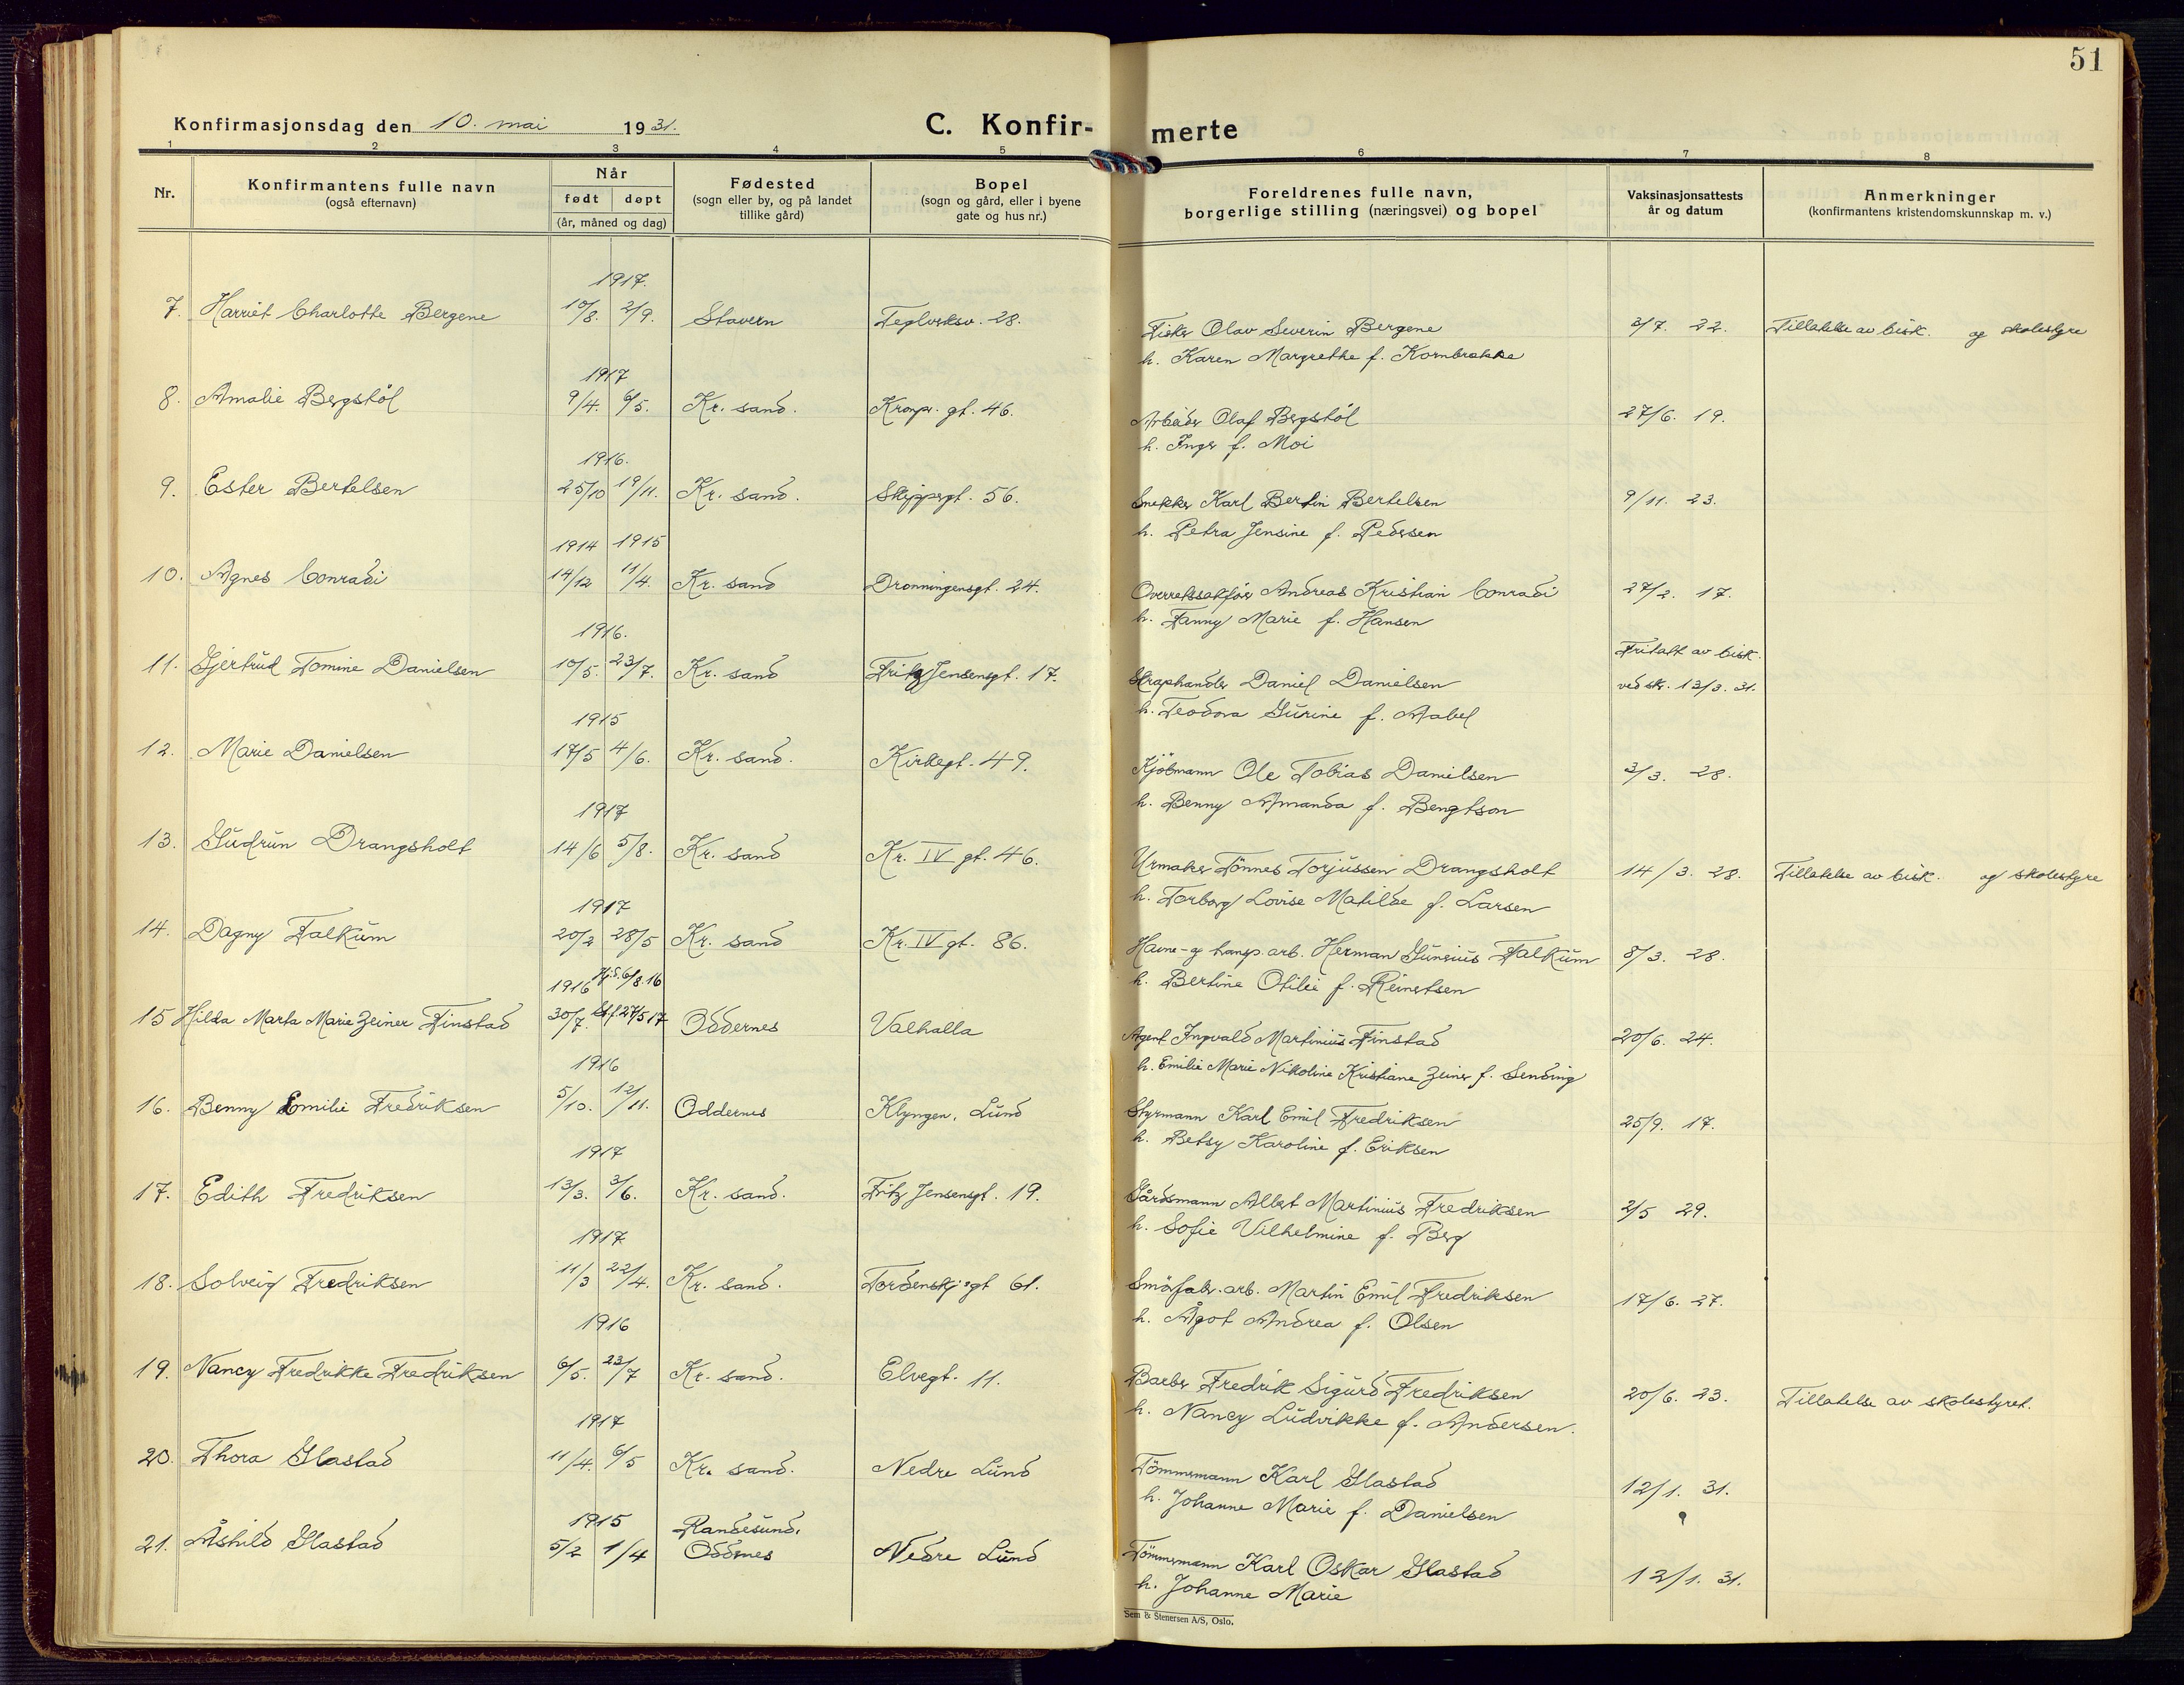 51
Konfirmasjonsdag den 10. mai 1931.
C. Konfir-
merte
1 2 3 4 5 6 7 8
Nr. Konfirmantens fulle navn (også efternavn) Når født døpt (år, måned og dag) Fødested (sogn eller by, og på landet tillike gård) Bopel (sogn og gård, eller i byene gate og hus nr.) Foreldrenes fulle navn, borgerlige stilling (næringsvei) og bopel Vaksinasjonsattests år og datum Anmerkninger (konfirmantens kristendomskunnskap m. v.)
1917.
7. Harriet Charlotte Bergene 10/8. 2/9. Stavern Teglverksv. 28. Fisker Olav Severin Bergene 3/7. 22. Tillatelse av bisk. og skolestyre
h. Karen Margrethe f. Kornbrekke
1917
8. Amalie Bergstöl 9/4. 6/5. Kr. sand. Kronpr. gt. 46. Arbeider Olaf Bergstöl 27/6. 19.
h. Inger f. Moi
1916.
9. Ester Bertelsen 25/10 19/11. Kr. sand. Skippergt. 56. Snekker Karl Bertin Bertelsen 9/11. 23.
h. Petra Jensine f. Pedersen
1914 1915
10. Agnes Conradi 14/12 11/4. Kr. sand Dronningensgt. 24. Overretssakförer Andreas Kristian Conradi 27/2. 17.
h. Fanny Marie f. Hansen
1916.
11. Gjertrud Tomine Danielsen 10/5. 23/7. Kr. sand Fritz Jensensgt. 17. Skraphandler Daniel Danielsen Fritatt av bisk. ved skr. 13/3. 31.
h. Teodora Gurine f. Aabel
1915
12. Marie Danielsen 17/5 4/6. Kr. sand. Kirkegt. 49. Kjöbmann Ole Tobias Danielsen 3/3. 28.
h. Benny Amanda f. Bengtson
1917
13. Gudrun Drangsholt 14/6 5/8. Kr. sand Kr. IV gt. 46. Urmaker Tönnes Torjussen Drangsholt 14/3. 28. Tillatelse av bisk. og skolestyre
h. Torborg Lovise Matilde f. Larsen
1917
14. Dagny Falkum 20/2 28/5 Kr. sand Kr. IV gt. 86. Havne- og hangs. arb. Herman Gunerius Falkum 8/3. 28.
h. Bertine Otilie f. Reinertsen
1916 Hj. d. 6/8. 16
15 Hilda Marta Marie Zeiner Finstad 30/7. St. f. 27/5 17 Oddernes Valhalla Agent Ingvald Martinius Finstad 20/6. 24.
h. Emilie Marie Nikoline Kristiane Zeiner f. Sending
1916
16. Benny Emilie Fredriksen 5/10. 12/11. Oddernes Klyngen, Lund Styrmann Karl Emil Fredriksen 25/9. 17.
h. Betsy Karoline f. Eriksen
1917
17. Edith Fredriksen 13/3. 3/6. Kr. sand. Fritz Jensensgt. 19. Gårdsmann Albert Martinius Fredriksen 2/5 29.
h. Sofie Vilhelmine f. Berg
1917
18. Solveig Fredriksen 11/3 22/4. Kr. sand. Tordenskj.sgt 61. Smörfabr. arb. Martin Emil Fredriksen 17/6. 27.
h. Ågot Andrea f. Olsen
1916
19. Nancy Fredrikke Fredriksen 6/5. 23/7 Kr. sand. Elvegt. 11. Barber Fredrik Sigurd Fredriksen 20/6. 23. Tillatelse av skolestyret.
h. Nancy Ludvikke f. Andersen.
1917
20. Thora Glastad 11/4. 6/5 Kr. sand. Nedre Lund Tömmermann Karl Glastad 12/1. 31.
h. Johanne Marie f. Danielsen
1915 Randesund.
21. Åshild Glastad 5/2 1/4 Oddernes Nedre Lund Tömmermann Karl Oskar Glastad 12/1. 31.
h. Johanne Marie
Sem & Stenersen A/S, Oslo.